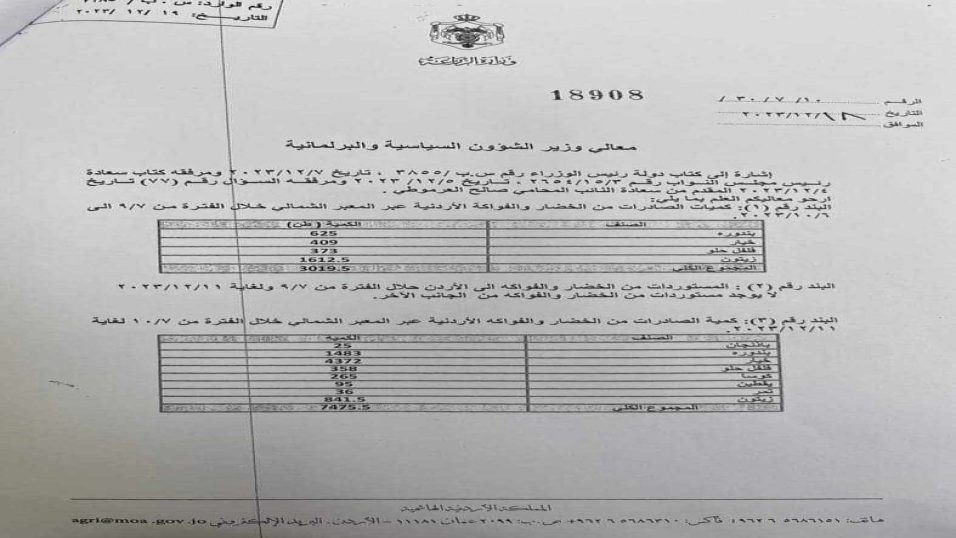 رقم الوارد: س . ب /
التاريخ: ١٩ /١٢ /٢٠٢٣
وزارة الزراعة
18908
الرقم ١٠ /٧ /٣٠ /
التاريخ ٢٠٢٣/١٢/١٨
الموافق
معالي وزير الشؤون السياسية والبرلمانية
إشارة إلى كتاب دولة رئيس الوزراء رقم س.ب /٣٨٥٥ ، تاريخ ٢٠٢٣/١٢/٧ ومرفقه كتاب سعادة
رئيس مجلس النواب رقم ٢١٥٤/١٥/٣ ، تاريخ ٢٠٢٣/١٢/٥ ومرفقه السؤال رقم (٧٧) تاريخ
٢٠٢٣/١٢/٤ المقدم من سعادة النائب المحامي صالح العرموطي .
ارجو معاليكم العلم بما يلي:
البند رقم (١): كميات الصادرات من الخضار والفواكة الأردنية عبر المعبر الشمالي خلال الفترة من ٩/٧ الى
٢٠٢٣/١٠/٦.
الصنف الكمية (طن)
بندوره 625
خيار 409
فلفل حلو 373
زيتون 1612.5
المجموع الكلي 3019.5
البند رقم (٢) : المستوردات من الخضار والفواكه الى الأردن خلال الفترة من ٩/٧ ولغاية ٢٠٢٣/١٢/١١
لا يوجد مستوردات من الخضار والفواكه من الجانب الآخر.
البند رقم (٣): كمية الصادرات من الخضار والفواكه الأردنية عبر المعبر الشمالي خلال الفترة من ١٠/٧ لغاية
٢٠٢٣/١٢/١١.
الصنف الكمية
باذنجان 25
بندوره 1483
خيار 4372
فلفل حلو 358
كوسا 265
يقطين 95
تمر 36
زيتون 841.5
المجموع الكلي 7475.5
المملكة الأردنية الهاشمية
هاتف: ٥٦٨٦١٥١ ٦ ٩٦٢+ فاكس: ٥٦٨٦٣١٠ ٦ ٩٦٢+ ص.ب: ٢٠٩٩ عمان ١١١٨١ – الأردن. البريد الإلكتروني agri@moa.gov.jo